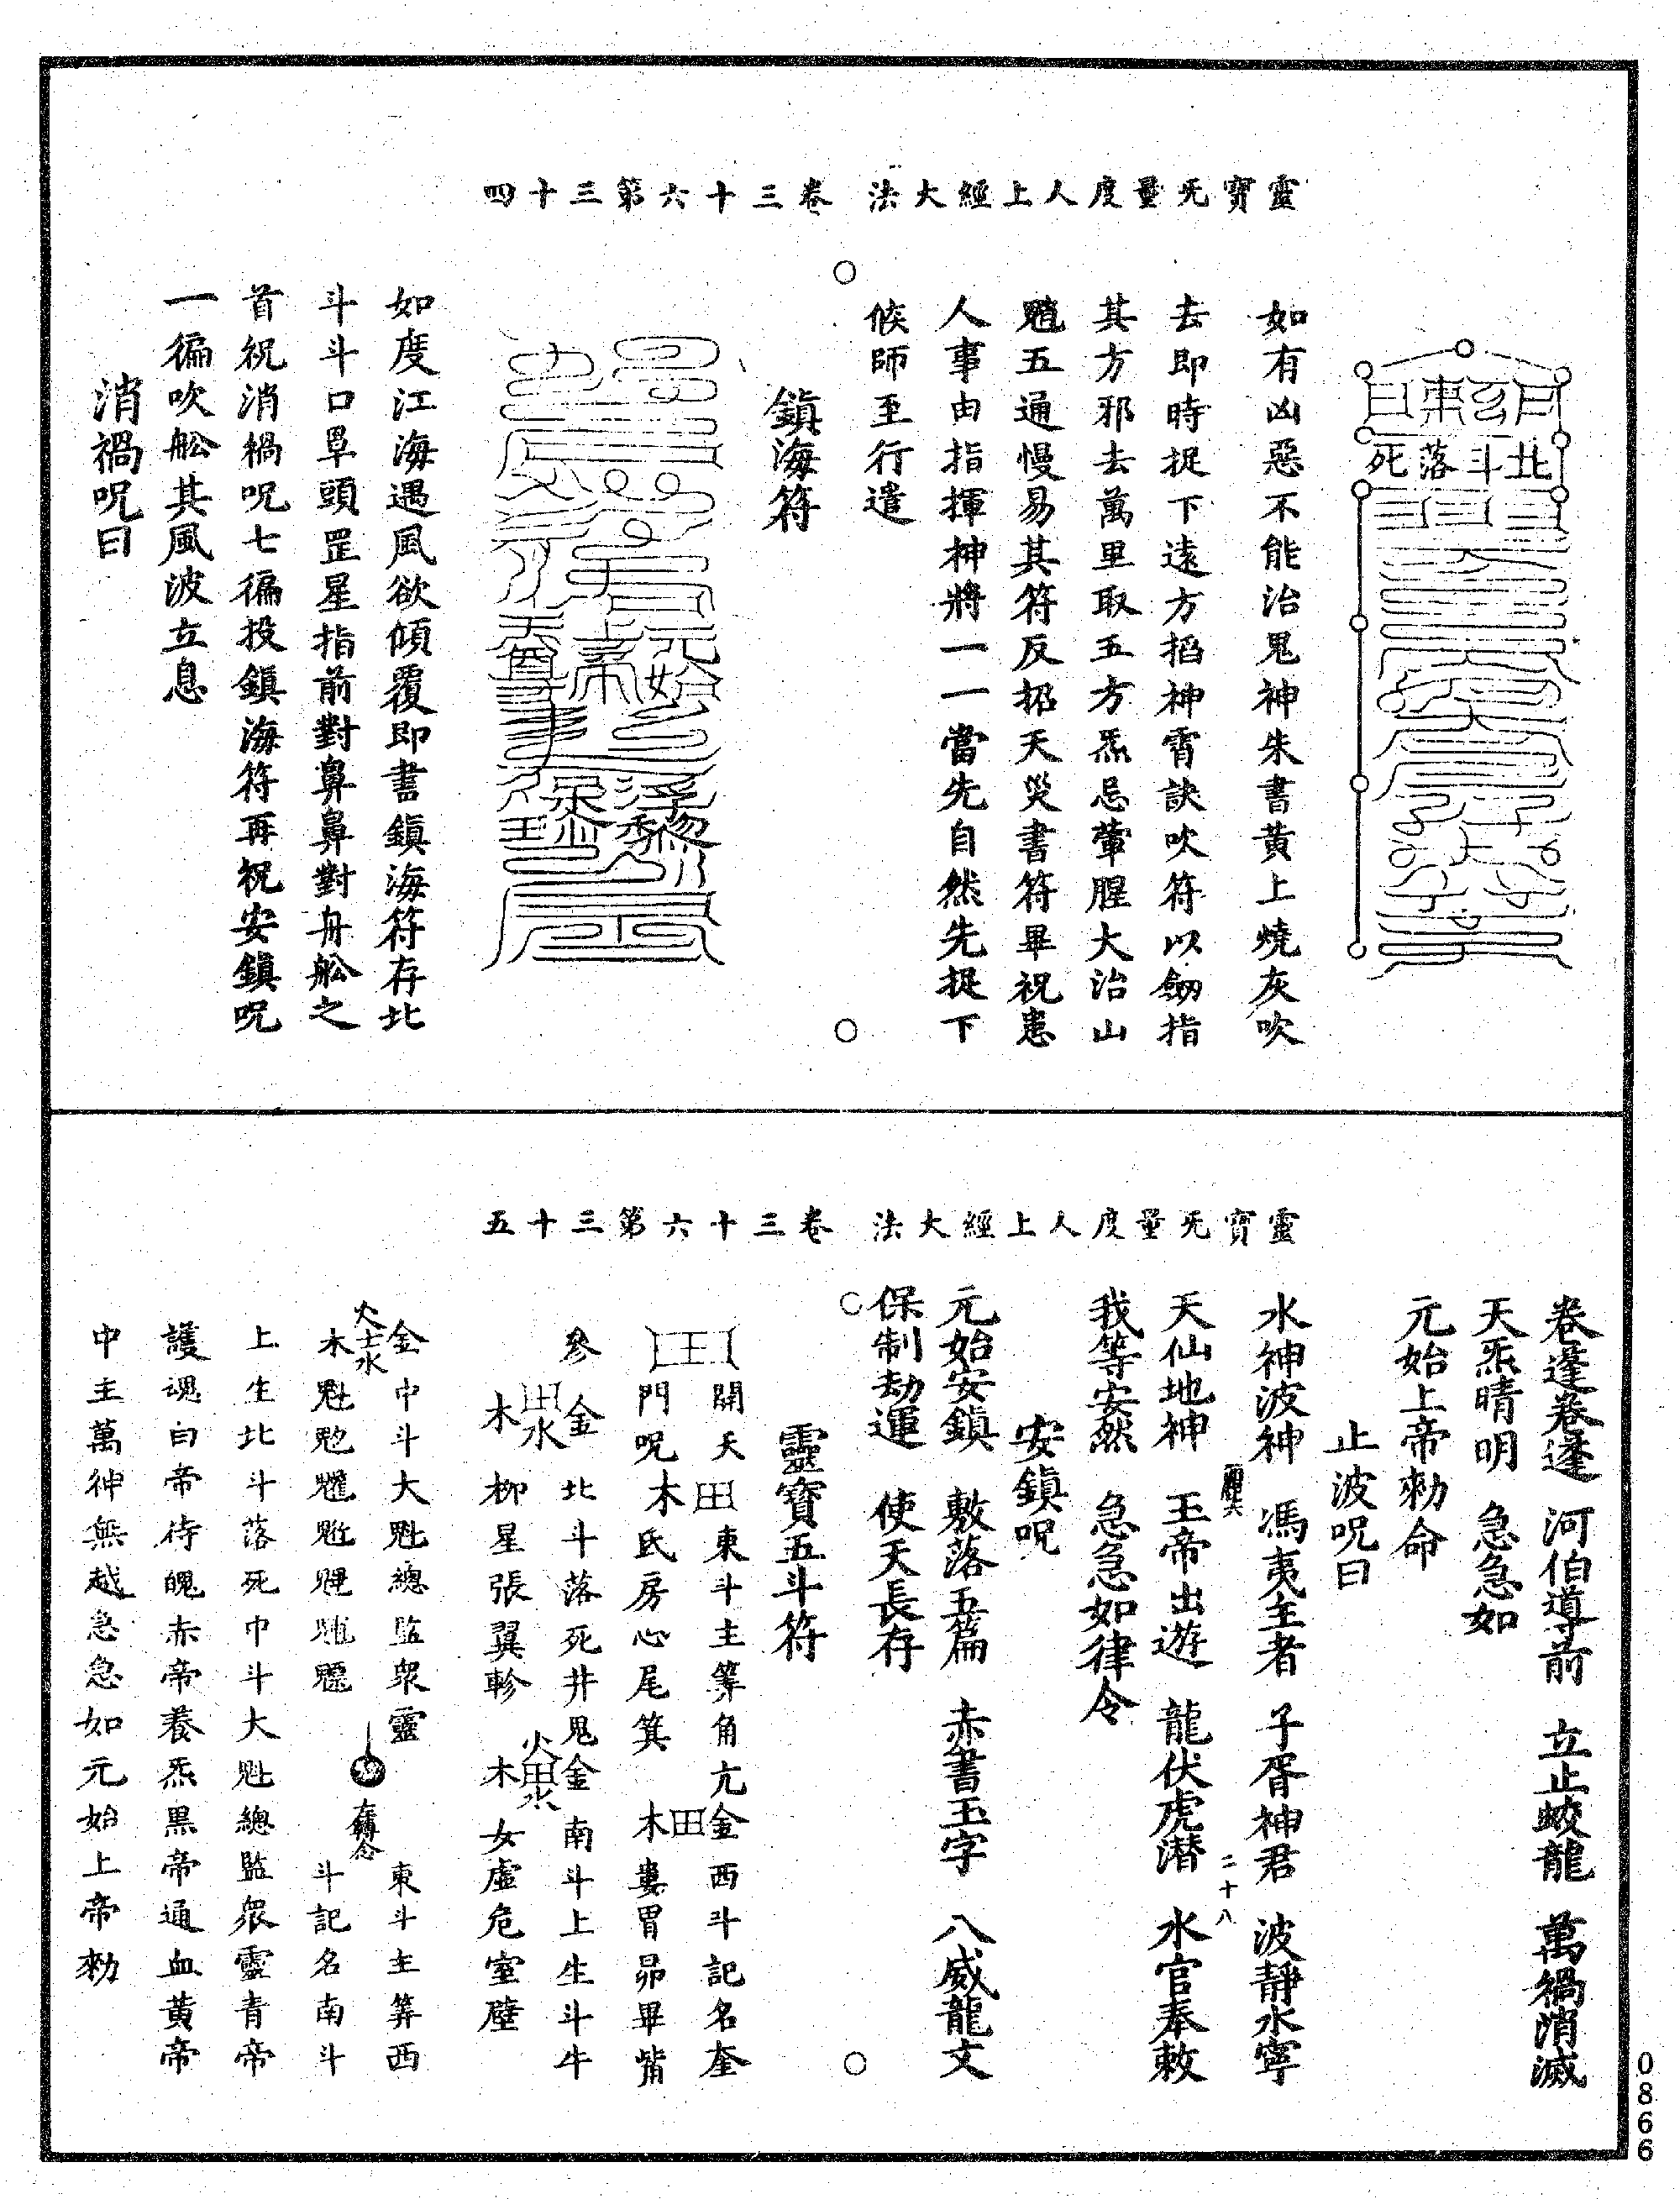 靈寶无量度人上經大法 卷三十六第三十四
北斗落死
如有凶惡不能治鬼神朱書黃上燒灰吹
去即時捉下遠方掐神霄訣吹符以劒指
其方邪去萬里取五方炁忌葷腥大治山
魈五通慢易其符反招天災書符畢祝患
人事由指揮神將一一當先自然先捉下
候師至行遣
鎮海符
如度江海遇風欲傾覆即書鎮海符存北
斗斗口罩頭罡星指前對鼻鼻對舟舩之
首祝消禍呪七徧投鎮海符再祝安鎮呪
一徧吹舩其風波立息
消禍呪曰
靈寶无量度人上經大法 卷三十六第三十五
卷蓬卷蓬 河伯導前 立止蛟龍 萬禍消滅
天炁晴明 急急如
元始上帝勑命
止波呪曰
水神波神 馮夷主者 子胥神君 波靜水寧
二十八
天仙地神 玉帝出遊 龍伏虎潛 水官奉敕
我等安然 急急如律令
安鎮呪
元始安鎮 敷落五篇 赤書玉字 八威龍文
保制劫運 使天長存
靈寶五斗符
開天 田 東斗主筭角亢金 西斗記名奎
門呪木 氐房心尾箕 木田 婁胃昴畢觜
參 金 北斗落死井鬼金 南斗上生斗牛
木田水 柳星張翼軫 木火田水 女虛危室壁
金中斗大魁總監眾靈 東斗主筭西
火土水
木魁𩲃䰢魓 斗記名南斗
上生北斗落死中斗大魁總監眾靈青帝
護魂白帝待魄赤帝養炁黑帝通血黃帝
中主萬神無越急急如元始上帝勑
0866